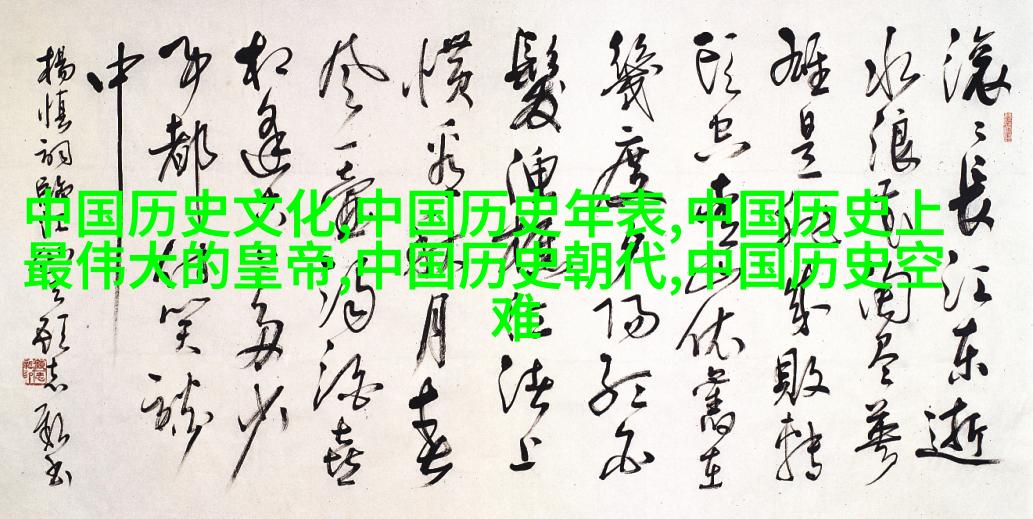 中国历史文化,中国历史年表,中国历史上
最伟大的皇帝,中国历史朝代,中国历史空
难
滚〻長江东逝
水浪花淘尽英
雄是非成敗轉
头空青山依舊在
幾度夕阳红白
髮渔樵江渚上
惯看秋月春
风一壶浊酒喜
相逢古今多少
事都付笑談
中
楊慎詞臨江